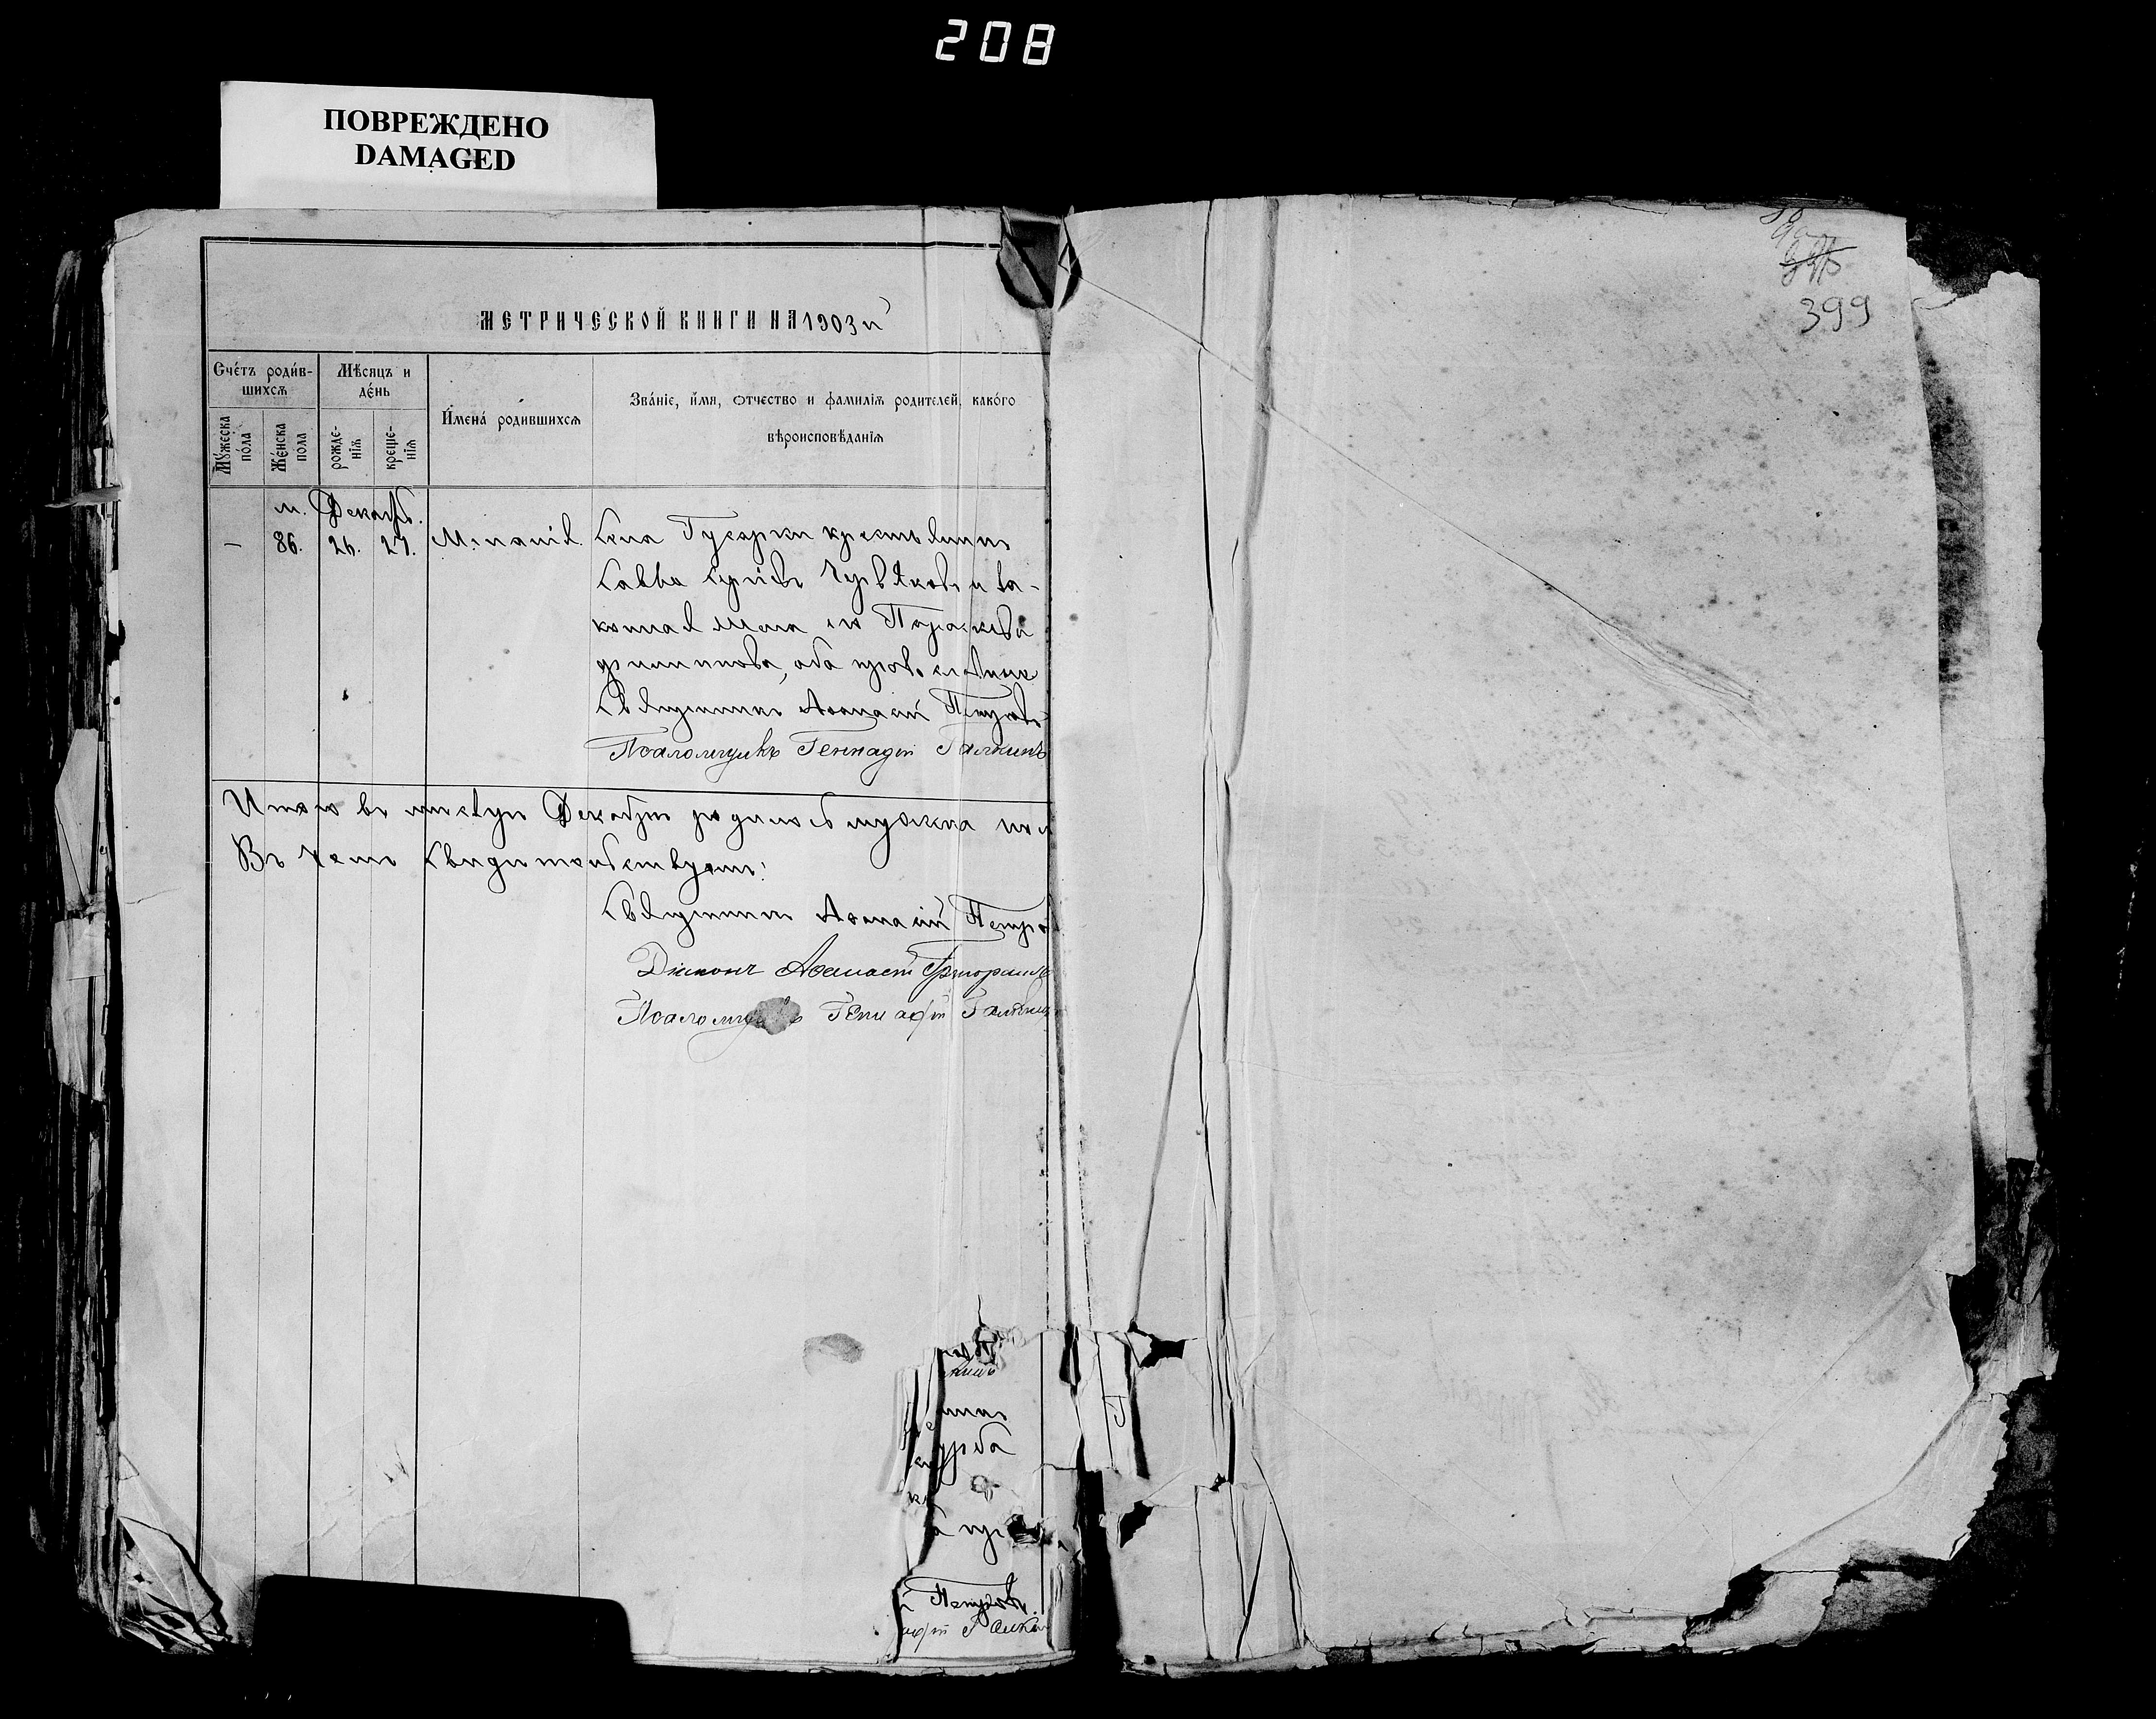 208
ПОВРЕЖДЕНО
DAMAGED
399
МЕТРИЧЕСКОЙ КНИГИ НА 1903 й
Счéтъ роди́в-
шихсѧ
Мѣсяцъ и
дéнь
И́мена́ родившихсѧ
Звáніе, и́мя, ѻтчество и фамиліѧ родителей, какóго
вѣроисповѣданіѧ
Му́жеска
пóла
Жéнска
пола
рожде-
ніѧ
креще-
нія
м. Декабр.
– 86. 26. 27. Меланія. Села Гусарки крестьянинъ
Савва Сергіевъ Червяковъ и за-
конная жена его Параскева
Филиппова, оба православные
Священникъ Аѳанасій Петровъ
Псаломщикъ Геннадій Галкинъ
Итого въ месяце Декабре родилось мужеска пол
Въ чемъ свидетельствуемъ:
Священникъ Аѳанасій Петров
Діаконъ Аѳанасій
Псаломщикъ Генадій Галкинъ
Петровъ.